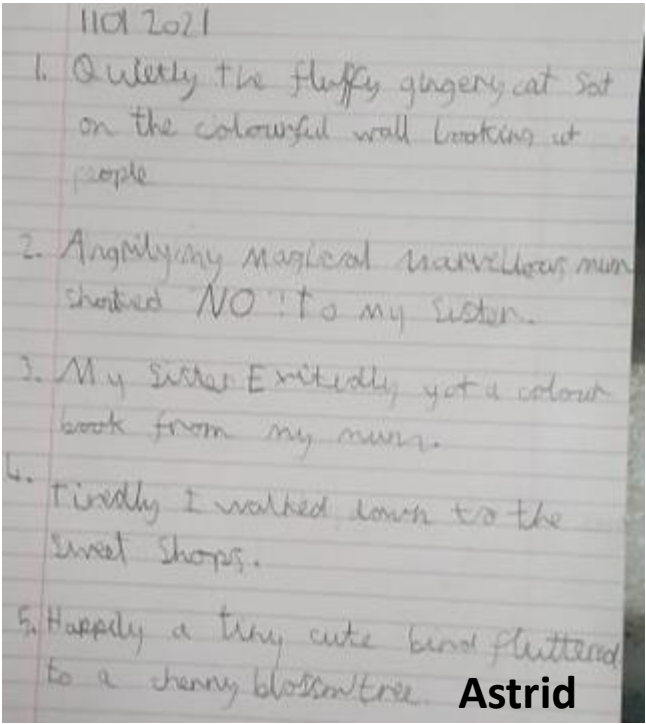 1101 2021
1. Quietly the fluffy gingery cat sat
on the colourful wall looking at
people
2. Angrily my magical marvellous mum
shouted NO! to my sister.
3. My sister Exitedly got a colour
book from my mum.
4.
Tiredly I walked down to the
sweet shops.
5. Happily a tiny cute bird fluttered
to a cherry blossom tree. Astrid